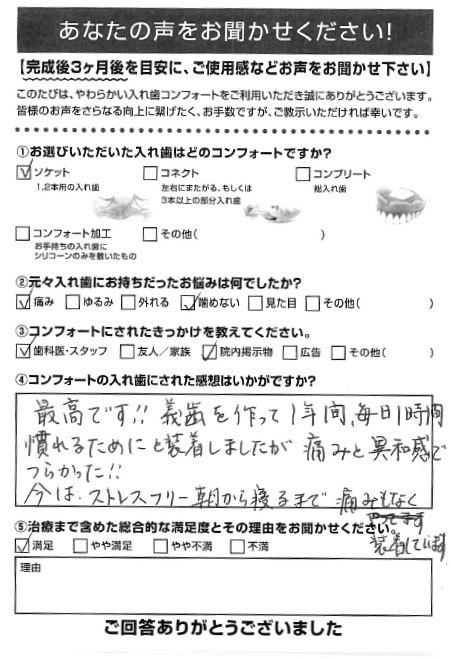 あなたの声をお聞かせください!
【完成後3ヶ月後を目安に、ご使用感などお声をお聞かせ下さい】
このたびは、やわらかい入れ歯コンフォートをご利用いただき誠にありがとうございます。
皆様のお声をさらなる向上に繋げたく、お手数ですが、ご教示いただければ幸いです。
①お選びいただいた入れ歯はどのコンフォートですか?
ソケット
1,2本用の入れ歯
コネクト
左右にまたがる、もしくは
3本以上の部分入れ歯
コンプリート
総入れ歯
コンフォート加工
お手持ちの入れ歯に
シリコーンのみを敷いたもの
その他( )
②元々入れ歯にお持ちだったお悩みは何でしたか?
痛み ゆるみ 外れる 噛めない 見た目 その他( )
③コンフォートにされたきっかけを教えてください。
歯科医・スタッフ 友人/家族 院内掲示物 広告 その他( )
④コンフォートの入れ歯にされた感想はいかがですか?
最高です!! 義歯を作って1年間、毎日1時間
慣れるためにと装着しましたが 痛みと異和感で
つらかった!!
今は、ストレスフリー朝から寝るまで 痛みもなく
装着しています
⑤治療まで含めた総合的な満足度とその理由をお聞かせください。
満足 やや満足 やや不満 不満
理由
ご回答ありがとうございました